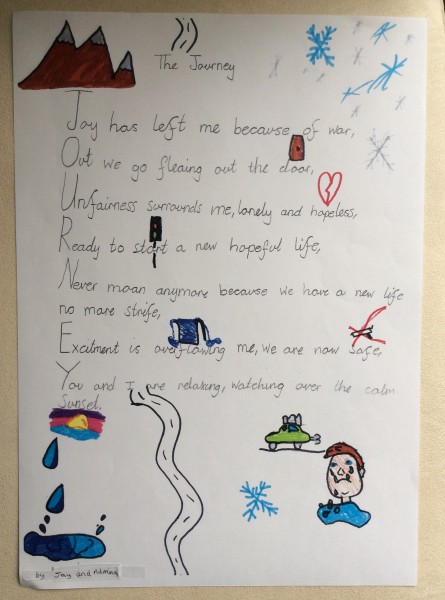 The Journey
Joy has left me because of war,
Out we go fleaing out the door,
Unfairness surrounds me, lonely and hopeless,
Ready to start a new hopeful life,
Never moan anymore because we have a new life
no more strife,
Excitment is overflowing me, we are now safe,
You and I are relaxing, watching over the calm
Sunset.
by Jay and